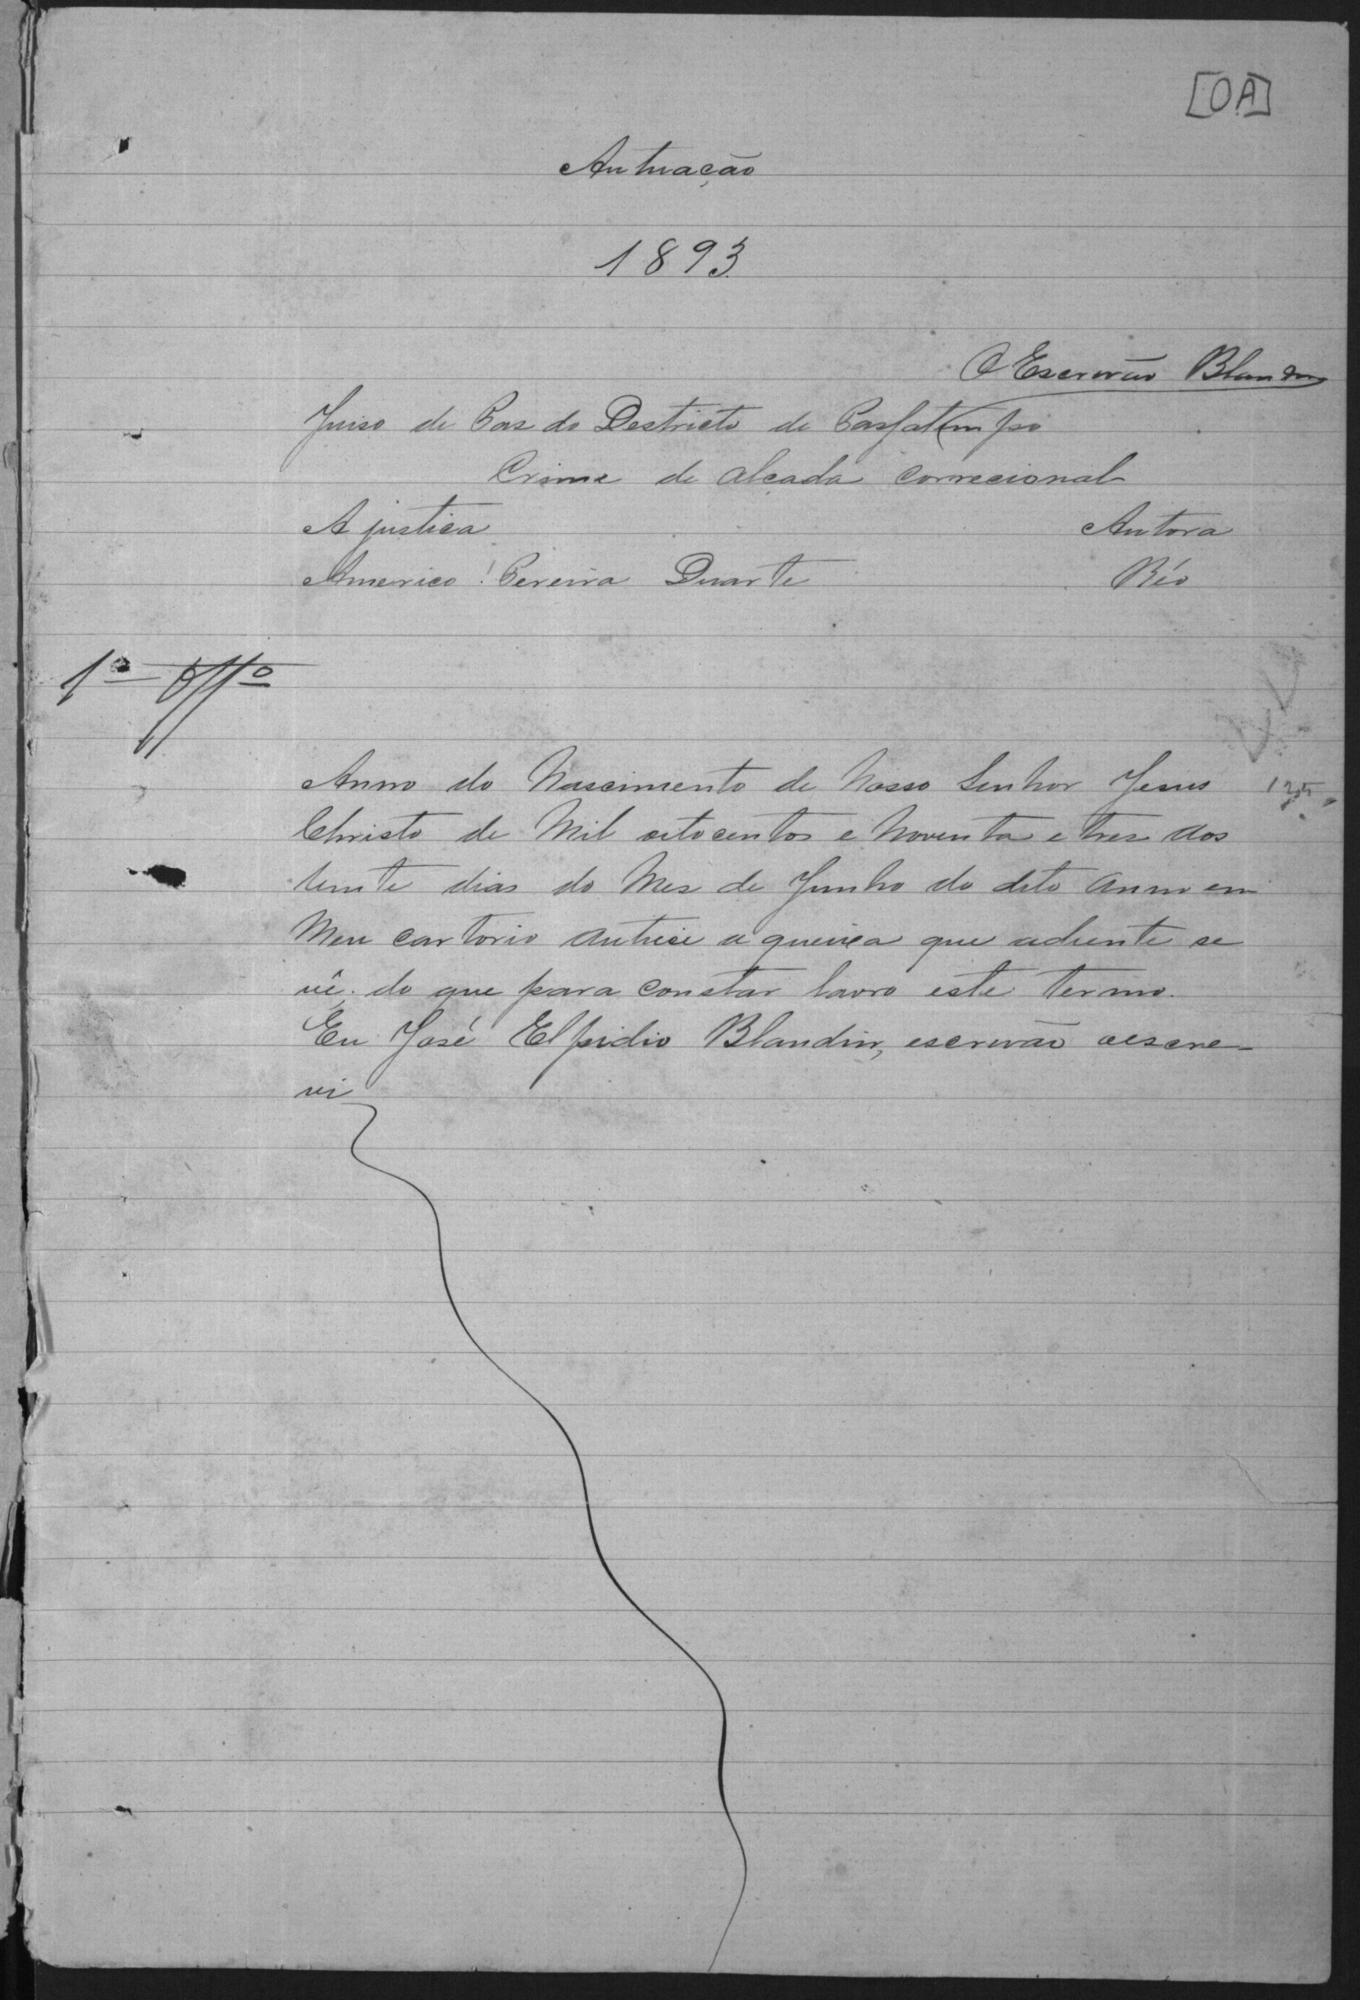 [OA]
Autuação
1893
O Escrivão Blandin
Juiso de Pas do Destricto de Passatempo
Crime de alçada correcional
A justiça Autora
Americo Pereira Duarte Réo
1º Offº
Anno do Nascimento de Nosso Senhor Jesus
Christo de Mil oitocentos e Noventa e tres aos
vinte dias do Mes de Junho do dito anno em
Meu cartorio autuei a queixa que adiente se
vê. do que para constar lavro este termo.
Eu José Elpidio Blandin, escrivão oescre-
vi